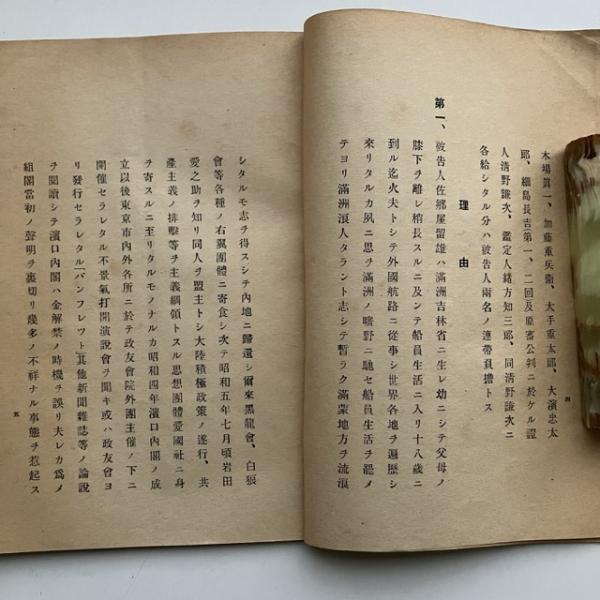 木場眞一、加藤重兵衞、大手重太郎、大濱忠太
郎、細島長吉(第一、二回)及原審公判ニ於ケル證
人淸野謙次、鑑定人緖方知三郎、同淸野謙次ニ
各給シタル分ハ被告人兩名ノ連帶負擔トス
理由
第一、被告人佐鄕屋留雄ハ滿洲吉林省ニ生レ幼ニシテ父母ノ
膝下ヲ離レ稍長スルニ及ンテ船員生活ニ入リ十八歲ニ
到ル迄火夫トシテ外國航路ニ從事シ世界各地ヲ遍歷シ
來リタルカ夙ニ思ヲ滿洲ノ曠野ニ馳セ船員生活ヲ罷メ
テヨリ滿洲浪人タラント志シテ暫ラク滿蒙地方ヲ流浪
四
シタルモ志ヲ得スシテ內地ニ歸還シ爾來黑龍會、白狼
會等各種ノ右翼團體ニ寄食シ次テ昭和五年七月頃岩田
愛之助ヲ知リ同人ヲ盟主トシ大陸積極政策ノ遂行、共
產主義ノ排擊等ヲ主義綱領トスル思想團體愛國社ニ身
ヲ寄スルニ至リタルモノナルカ昭和四年濱口內閣ノ成
立以後東京市內外各所ニ於テ政友會院外團主催ノ下ニ
開催セラレタル不景氣打開演說會ヲ聞キ或ハ政友會ヨ
リ發行セラレタル「パンフレツト」其他新聞雜誌等ノ論說
ヲ閱讀シテ濱口內閣ハ金解禁ノ時機ヲ誤リ夫レカ爲メ
組閣當初ノ聲明ヲ裏切リ幾多ノ不祥ナル事態ヲ惹起ス
五